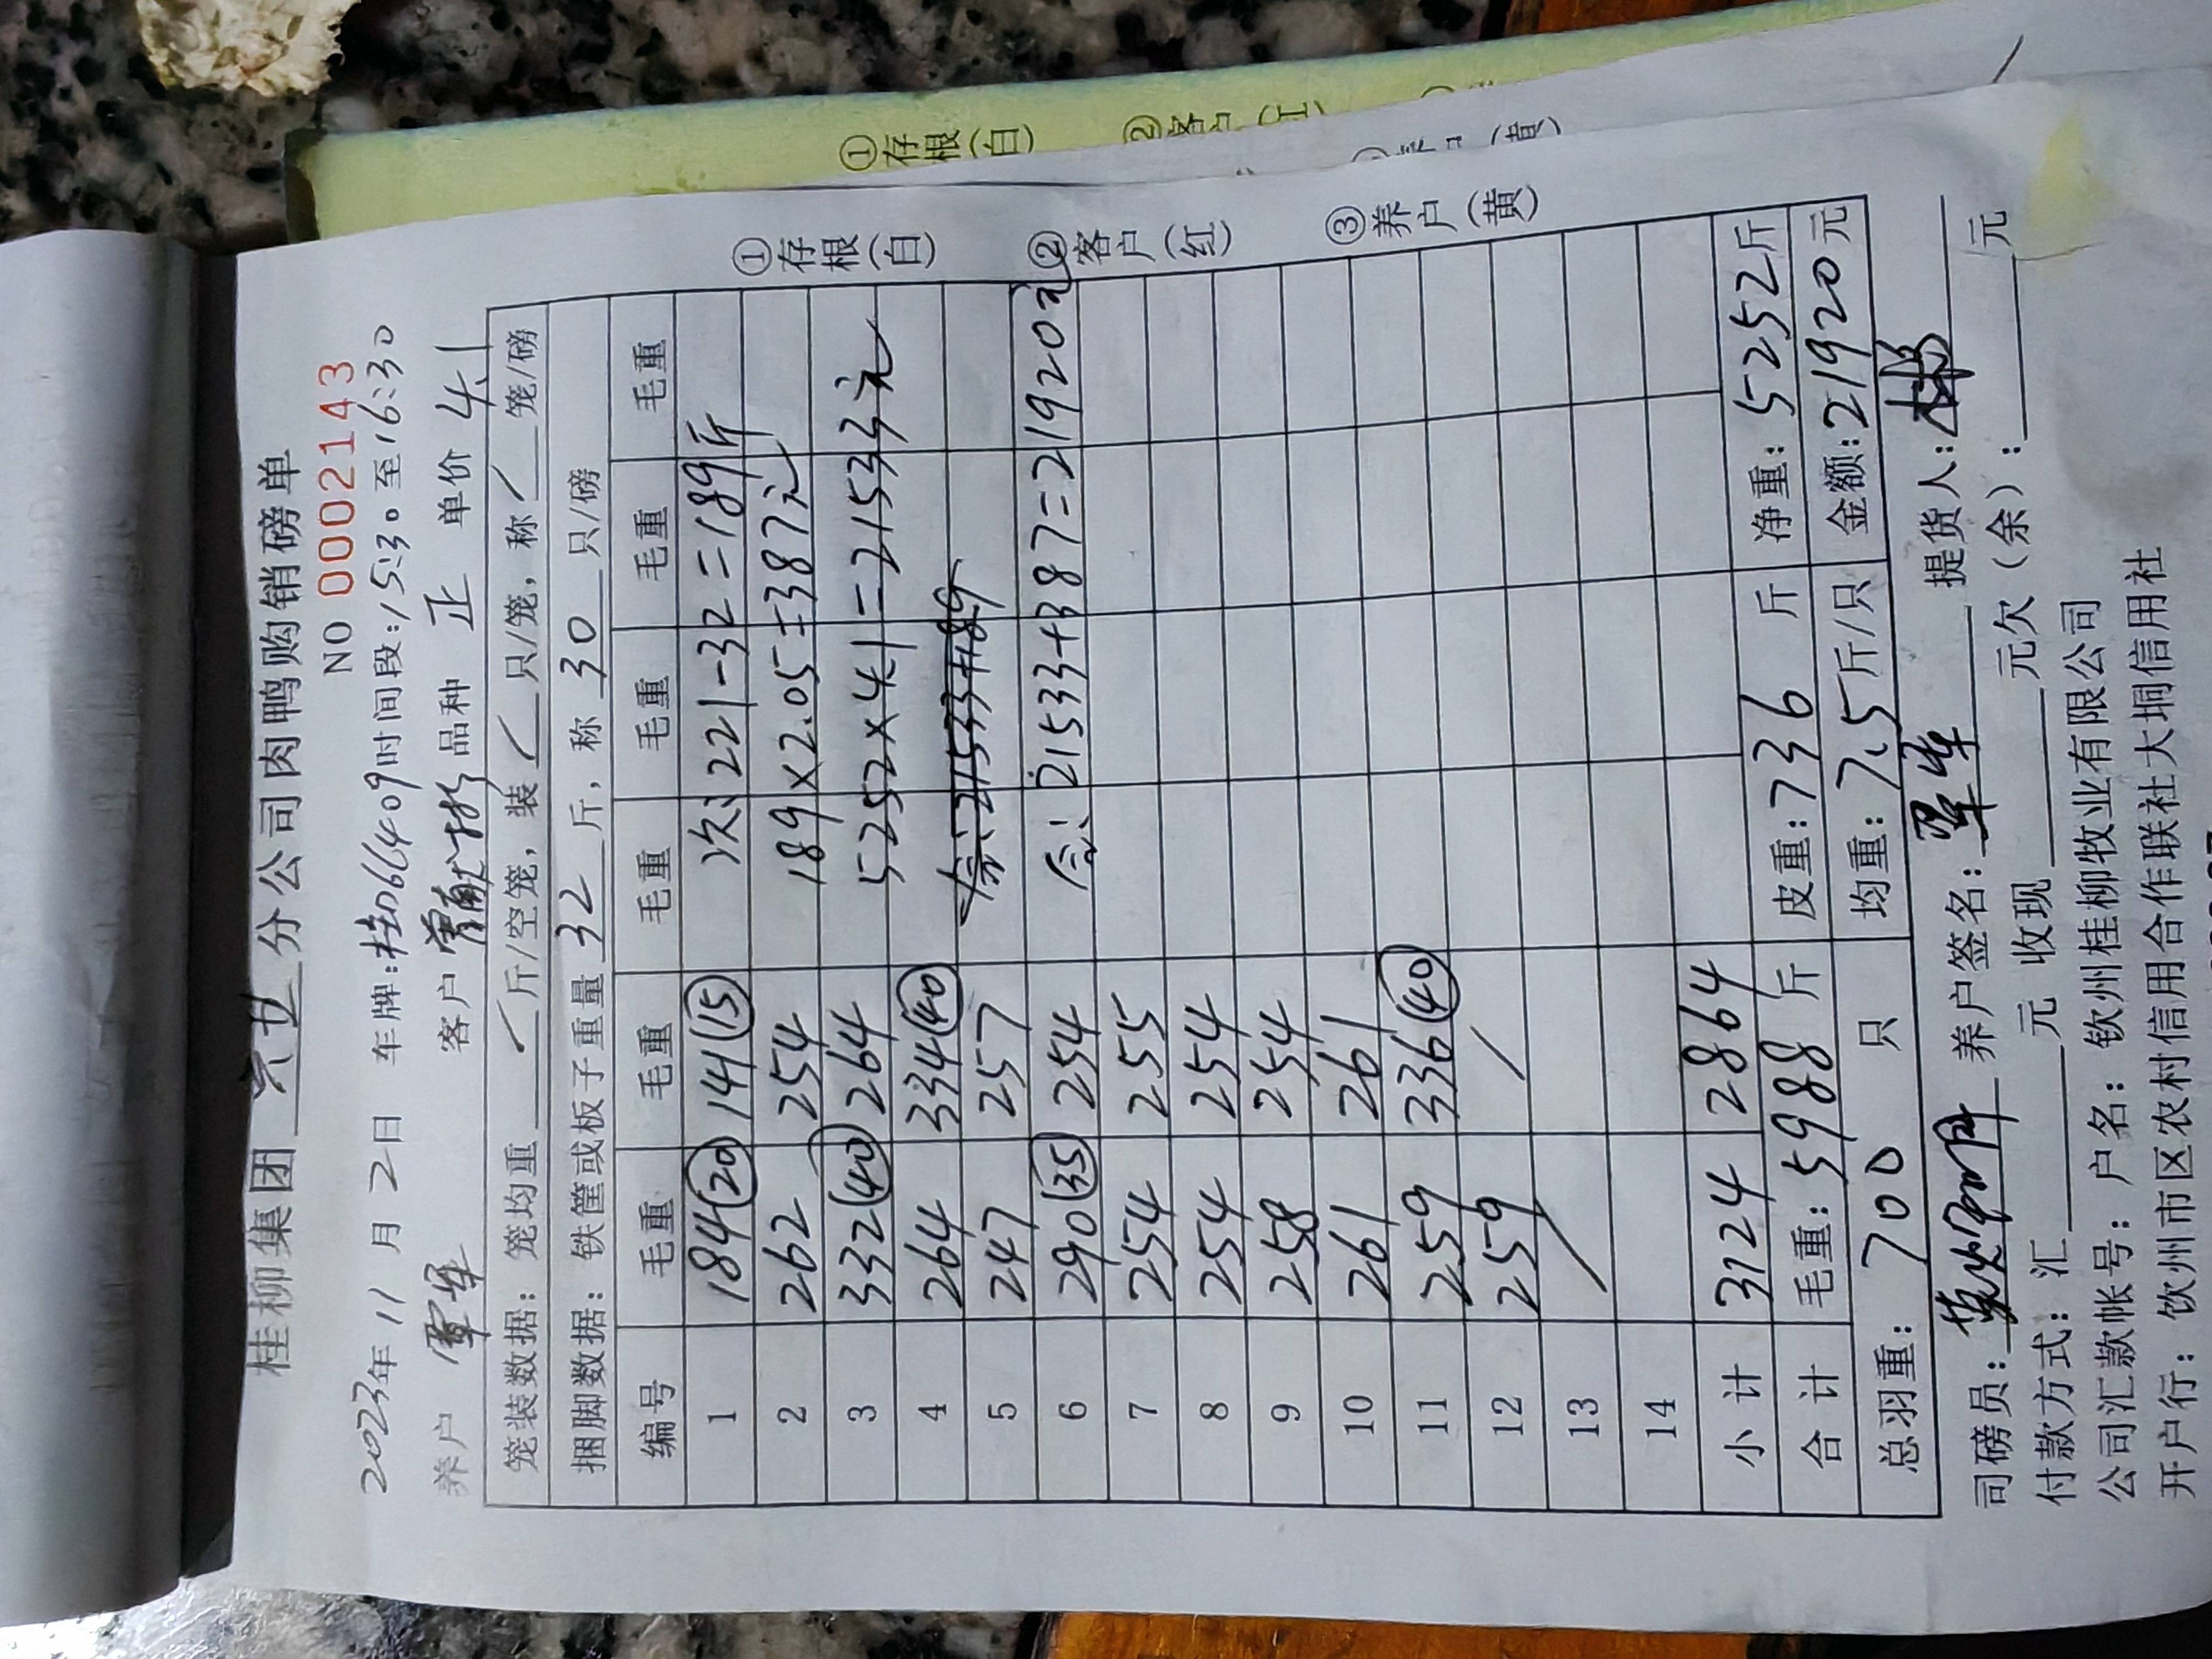 桂柳集团 六廿 分公司肉鸭购销磅单
NO 0002143
2023年 11 月 2 日 车牌:桂D66409 时间段:15:30 至 16:30
养户 覃军 客户 曾献 品种 正 单价 4.1
笼装数据: 笼均重 / 斤/空笼, 装 / 只/笼, 称 / 笼/磅
捆脚数据: 铁筐或板子重量 32 斤, 称 30 只/磅
编号 毛重 毛重 毛重 毛重 毛重 毛重
1 184 (20) 141 (15) 次: 221-32=189斤
2 262 254 189×2.05=387元
3 332 (40) 264 5252×4.1=21533元
4 264 334 (40) 合: 21533+189
5 247 257
6 290 (35) 254 合: 21533+387=21920元
7 254 255
8 254 254
9 258 254
10 261 261
11 259 336 (40)
12 259 /
13 /
14
小计 3124 2864
合计 毛重: 5988 斤 皮重: 736 斤 净重: 5252斤
总羽重: 700 只 均重: 7.5斤/只 金额: 21920元
司磅员: 养户签名: 覃军 提货人: 彬
付款方式: 汇 元 收现 元欠(余): 元
公司汇款帐号: 户名: 钦州桂柳牧业有限公司
开户行: 钦州市区农村信用合作联社大垌信用社
①存根(白) ②客户(红) ③养户(黄)
①存根(白) ②客户(红) 养户(黄)